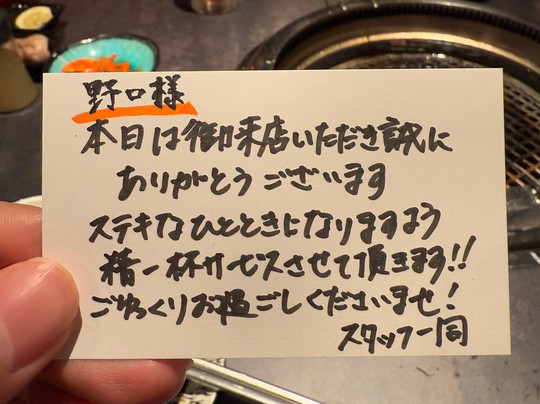 野口様
本日は御来店いただき誠に
ありがとうございます
ステキなひとときになりますよう
精一杯サービスさせて頂きます!!
ごゆっくりお過ごしくださいませ!
スタッフ一同